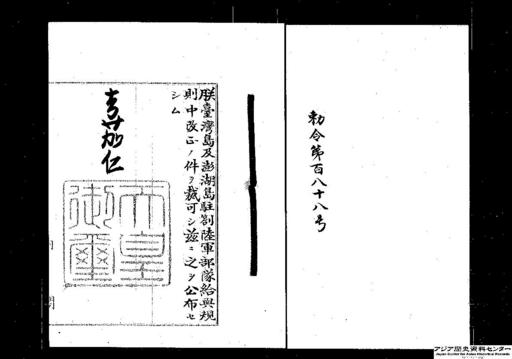 勅令第百八十八号
朕臺灣島及澎湖島駐劄陸軍部隊給與規
則中改正ノ件ヲ裁可シ茲ニ之ヲ公布セ
シム
嘉仁
天皇
御璽
アジア歴史資料センター
Japan Center for Asian Historical Records